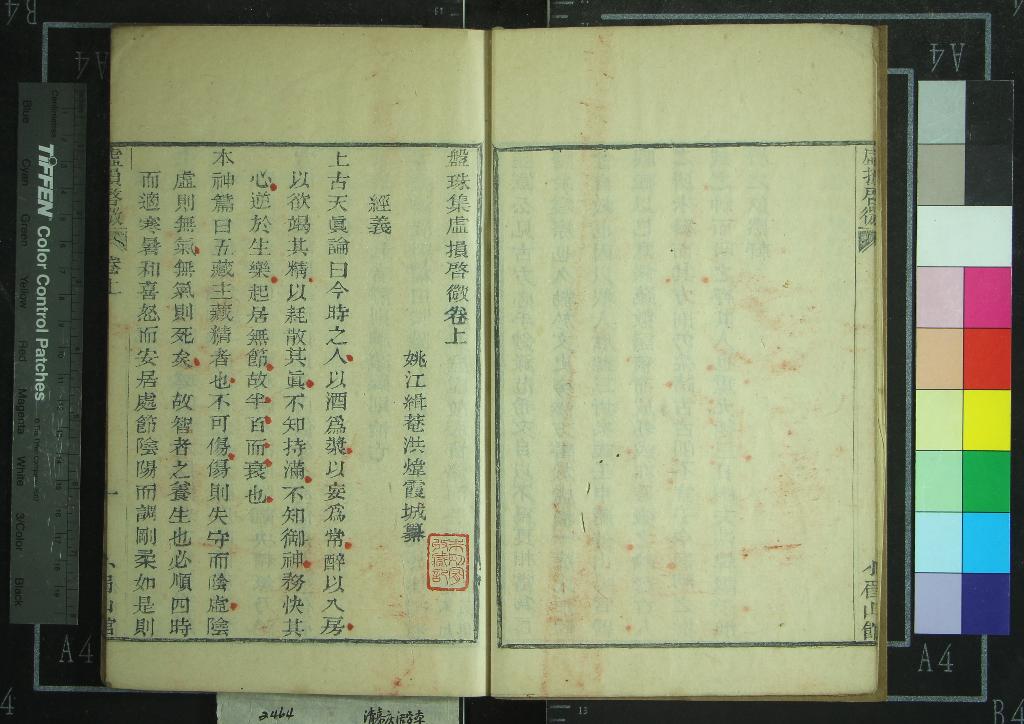 盤珠集虛損啓微卷上
姚江緝菴洪煒霞城纂
經義
上古天眞論曰今時之人以酒爲漿以妄爲常醉以入房
以欲竭其精以耗散其眞不知持滿不知御神務快其
心逆於生樂起居無節故半百而衰也
本神篇曰五藏主藏精者也不可傷傷則失守而陰虛陰
虛則無氣無氣則死矣故智者之養生也必順四時
而適寒暑和喜怒而安居處節陰陽而調剛柔如是則
虛損啓微
卷上
一
TIFFEN Color Control Patches
Blue
Cyan
Green
Yellow
Red
Magenta
White
3/Color
Black
Centimetres
2464
A4
A4
A4
A4
B4
13